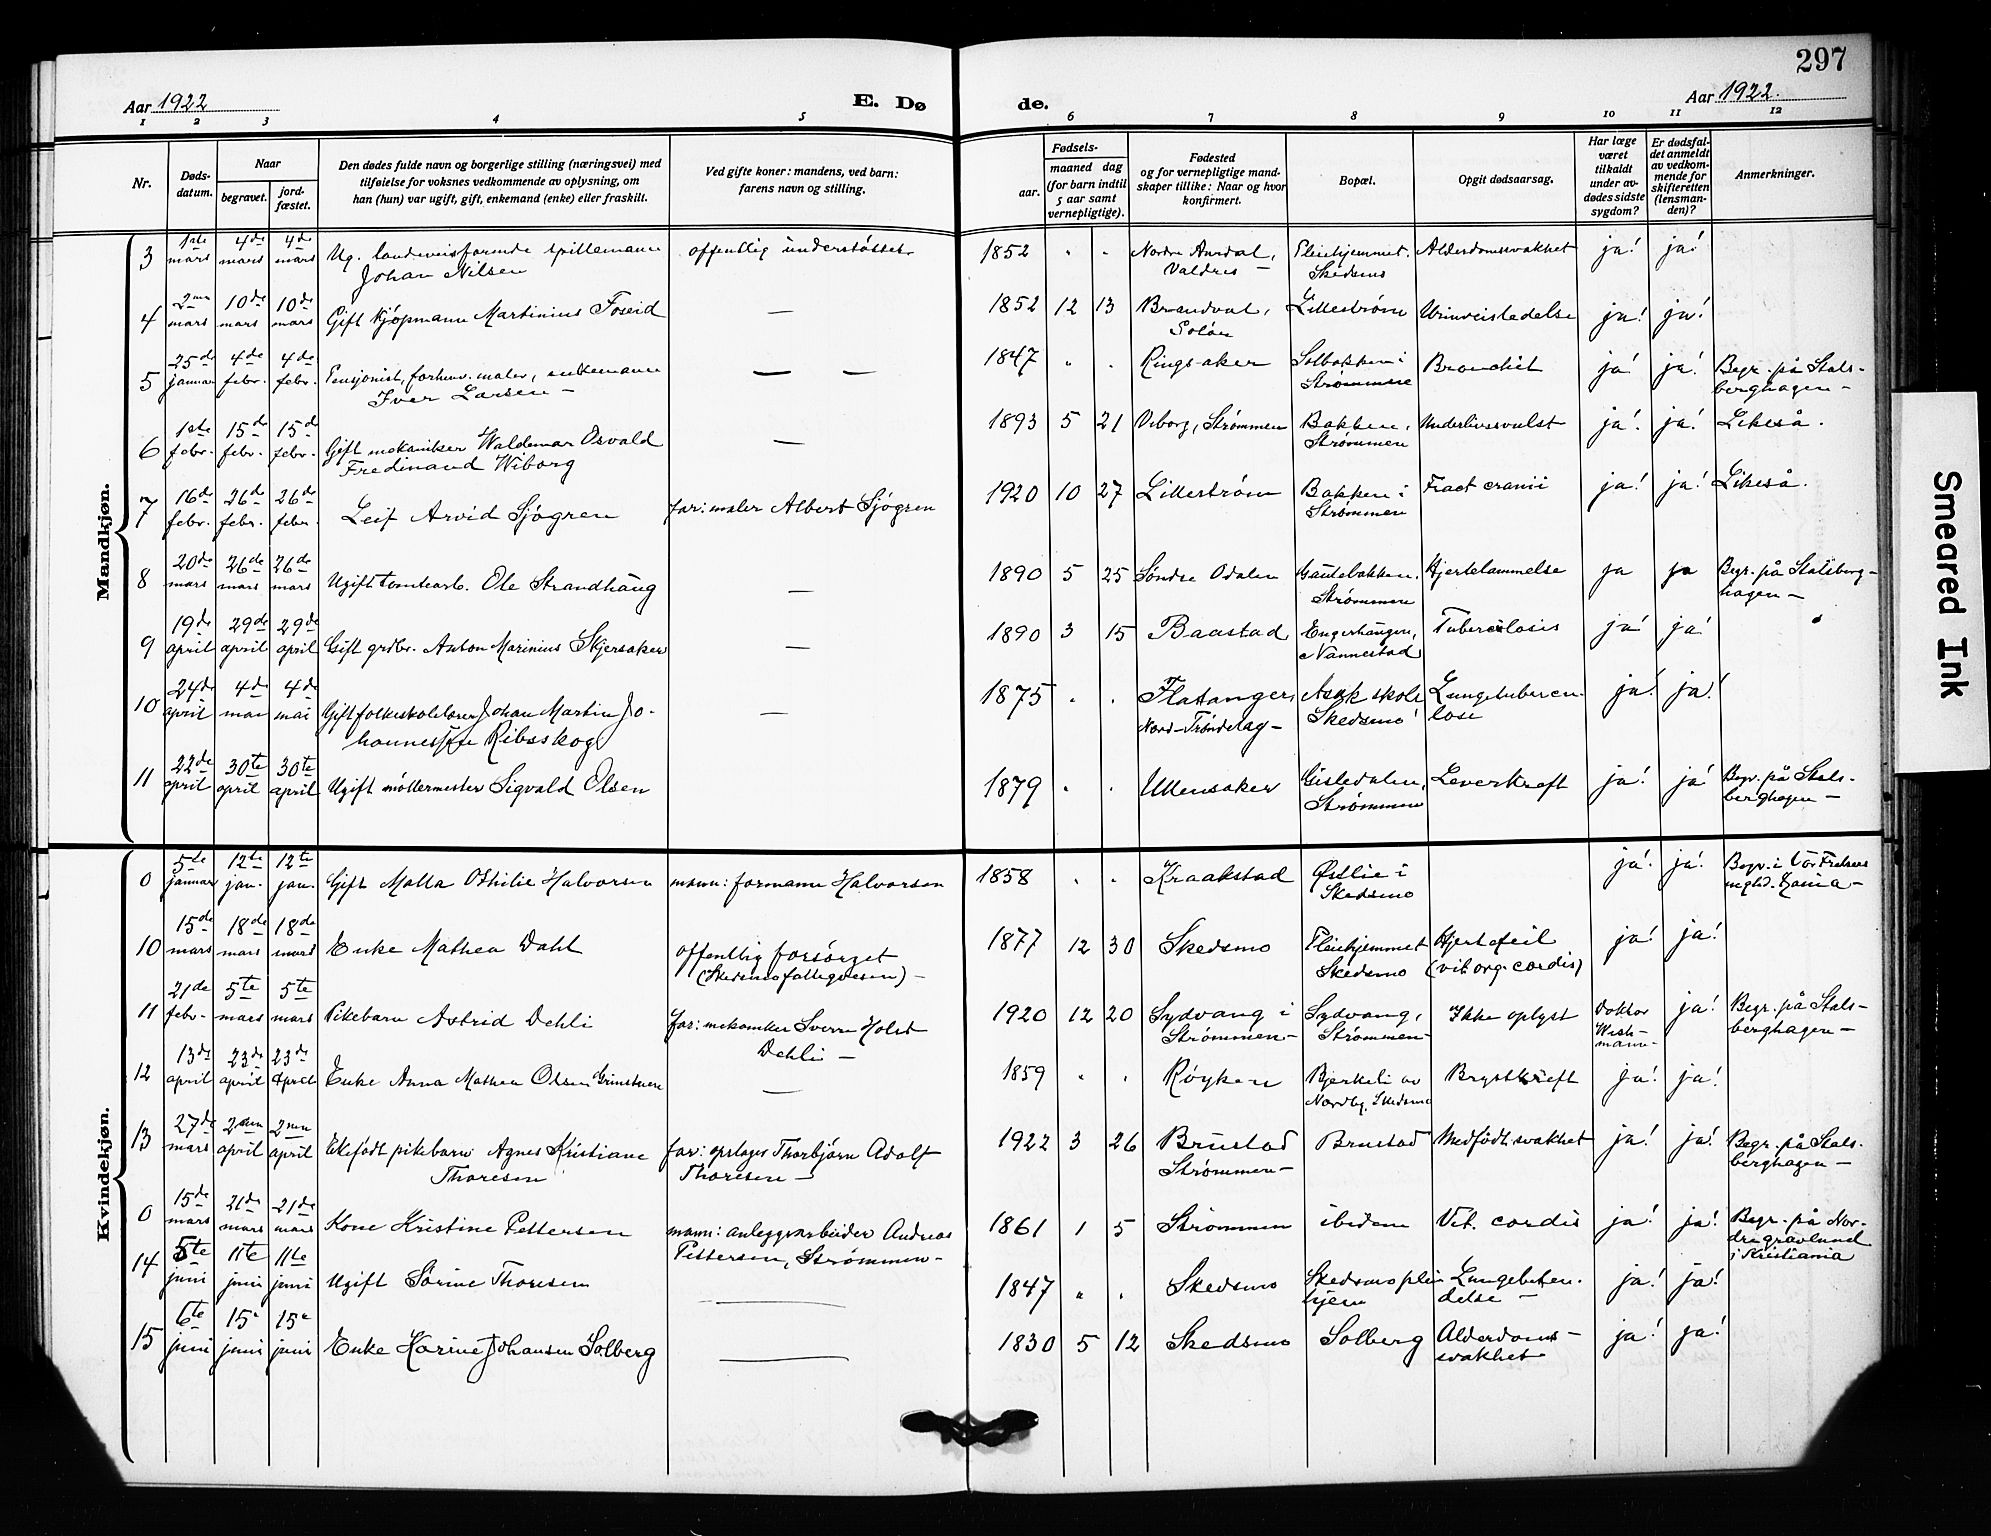 297
Aar 1922
E. Dø
de.
Aar 1922.
1 2 3 4 5 6 7 8 9 10 11 12
Nr.
Døds-
datum.
Naar
begravet.
jord-
fæstet.
Den dødes fulde navn og borgerlige stilling (næringsvei) med
tilføielse for voksnes vedkommende av oplysning, om
han (hun) var ugift, gift, enkemand (enke) eller fraskilt.
Ved gifte koner: mandens, ved barn:
farens navn og stilling.
Fødsels-
aar.
maaned dag
(for barn indtil
5 aar samt
vernepligtige).
Fødested
og for vernepligtige mand-
skaper tillike: Naar og hvor
konfirmert.
Bopæl.
Opgit dødsaarsag.
Har læge
været
tilkaldt
under av-
dødes sidste
sygdom?
Er dødsfal-
det anmeldt
av vedkom-
mende for
skifteretten
(lensman-
den)?
Anmerkninger.
Mandkjøn.
3 1ste mars 4de mars 4de mars Ug. landeveisfarende spillemann offentlig understøttet 1852 " " Nordre Aurdal, Pleiehjemmet. Alderdomssvakhet ja! ja!
Johan Nilsen Valdres — Skedsmo
4 2nn mars 10de mars 10de mars Gift kjøpmann Martinius Foseid — 1852 12 13 Brandval, Lillestrøm Urinveislidelse ja! ja!
Solør
5 25de januar 4de febr. 4de febr. Pensjonist, forhenv. maler, enkemann — — 1847 " " Ringsaker Solbakken i Bronchit ja! ja! Begr. på Stals-
Iver Larsen — Strømmen berghagen —
6 1ste febr. 15de febr. 15de febr. Gift mekaniker Waldemar Osvald — 1893 5 21 Viborg, Strømmen Bakken, Underlivssvulst ja! ja! Likeså.
Fredinand Wiborg Strømmen
7 16de febr. 26de febr. 26de febr. Leif Arvid Sjøgren far: maler Albert Sjøgren 1920 10 27 Lillestrøm Bakken i Fract cranii ja! ja! Likeså.
Strømmen
8 20de mars 26de mars 26de mars Ugift tomtearb. Ole Strandhaug — 1890 5 25 Søndre Odalen Gautebakken, Hjertelammelse ja ja Begr. på Stalsberg-
Strømmen hagen —
9 19de april 29de april 29de april Gift grdbr. Anton Marinius Skjersaker — 1890 3 15 Baastad Engerhaugen, Tuberculosis ja! ja!
Nannestad
10 24de april 4de mai 4de mai Gift folkeskolelærer Johan Martin Jo- — 1875 " " Flatanger, Asak skole Lungetubercu- ja! ja!
hannessen Ribsskog Nord-Trøndelag — Skedsmo! lose
11 22de april 30te april 30te april Ugift møllermester Sigvald Olsen 1879 " " Ullensaker Gisledalen, Leverkreft ja! ja! Begr. på Stals-
Strømmen berghagen —
Kvindekjøn.
0 5te januar 12te jan. 12te jan. Gift Malla Othilie Halvorsen mann: formann Halvorsen 1858 " " Kraakstad Østlie i ja! ja! Begr. i Vor Frelsers
Skedsmo
10 15de mars 18de mars 18de mars Enke Mathea Dahl offentlig forsørget 1877 12 30 Skedsmo Pleiehjemmet Hjertefeil ja! ja!
(Skedsmo fattigvesen) — Skedsmo (vit. org. cordis)
11 21de febr. 5te mars 5te mars Pikebarn Astrid Dehli far: mekaniker Sverre Holst 1920 12 20 Sydvang i Sydvang, Ikke oplyst Doktor ja! Begr. på Stals-
Dehli — Strømmen — Strømmen — Wesh- berghagen —
mann —
12 13de april 23de april 23de april Enke Anna Mathea Olsen Grimstuen — 1859 " " Røyken Bjerkeli av Brystkreft ja! ja!
Nordby, Skedsmo
13 27de mars 2nn april 2nn april Ektefødt pikebarn Agnes Kristiane far: opslager Thorbjørn Adolf 1922 3 26 Brustad Brustad Medfødt svakhet ja! ja! Begr. på Stals-
Thoresen Thoresen — Strømmen — berghagen —
0 15de mars 21de mars 21de mars Kone Kristine Pettersen mann: anleggsarbeider Andreas 1861 1 5 Strømmen ibidem Vit. cordis ja! ja! Begr. på Nor-
Pettersen, Strømmen — dre gravlund
i Kristiania
14 5te juni 11te juni 11te juni Ugift Sørine Thoresen — 1847 " " Skedsmo Skedsmo plei Lungebeten- ja! ja!
hjem delse —
15 6te juni 15e juni 15e juni Enke Karine Johansen Solberg — 1830 5 12 Skedsmo Solberg Alderdoms- ja! ja!
svakhet
Smeared Ink